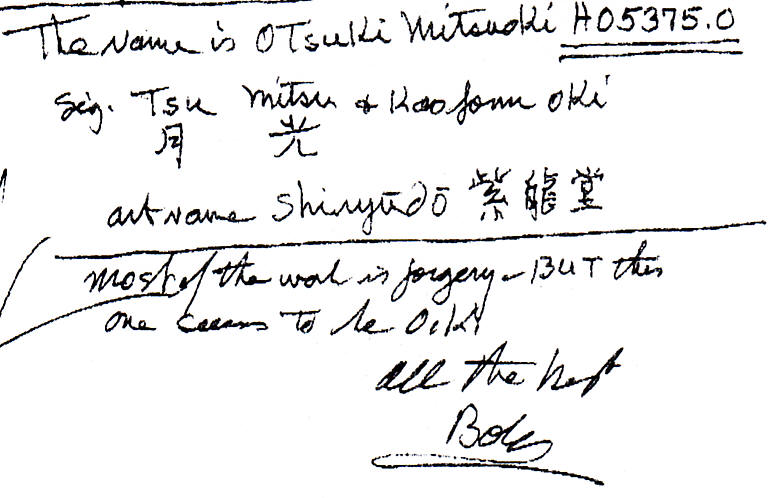 The name is OTsuKi MiTsuoKi H05375.0
Sig. Tsu mitsu & Kao form oKi
月 光
art name Shinryūdō 紫龍堂
most of the work is forgery - BUT this
one seems To be O.K.
all the best
Bob